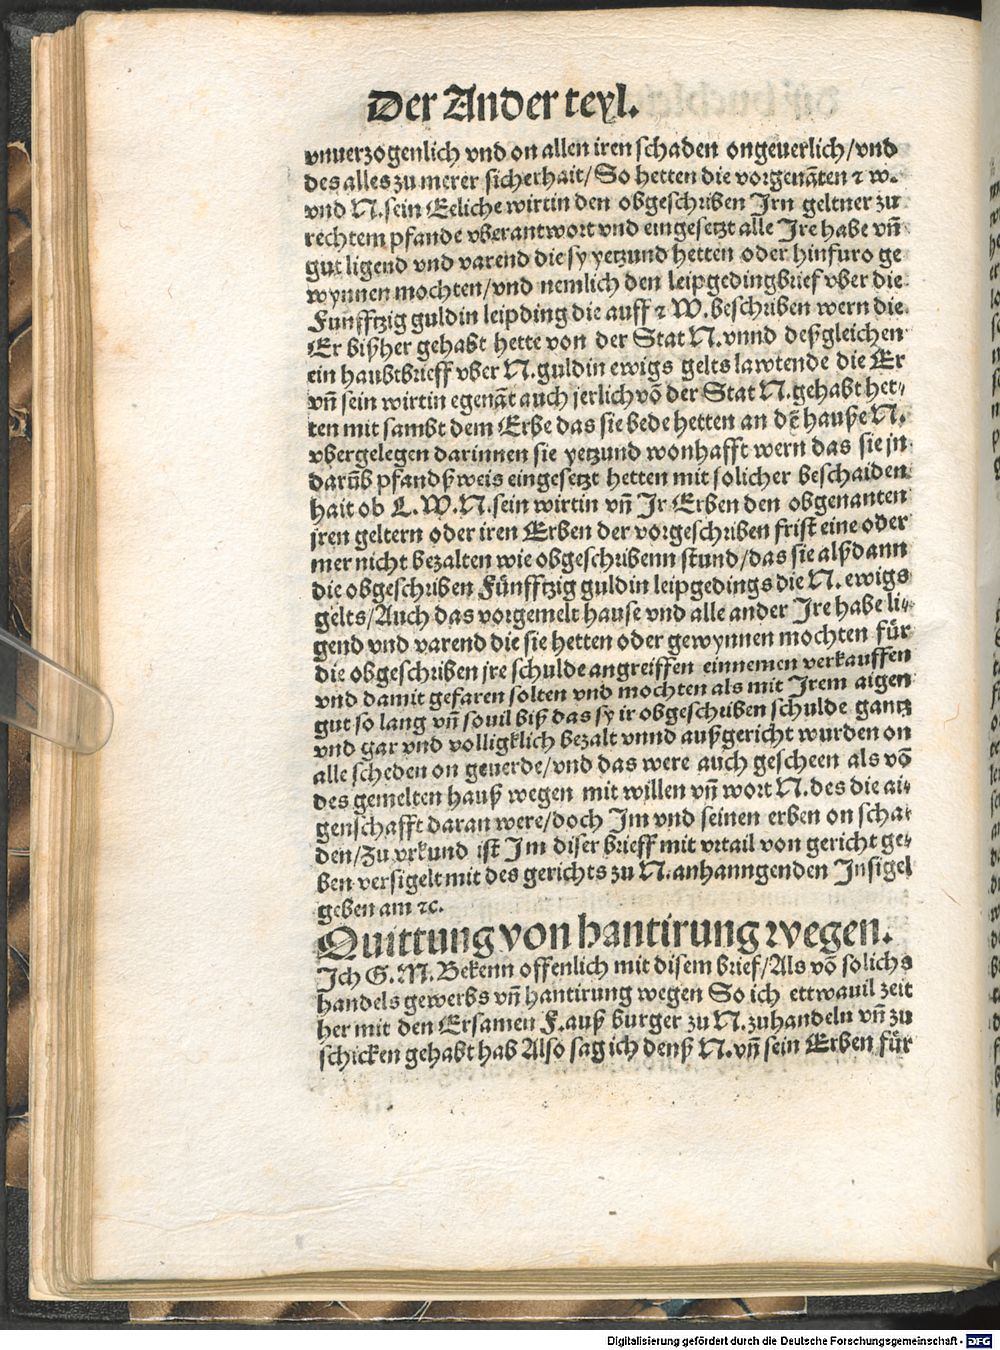 Der Ander teyl.
vnuerzogenlich vnd on allen iren schaden ongeuerlich/vnd
des alles zu merer sicherhait/So hetten die vorgenāten ⁊ w.
vnd N.sein Eeliche wirtin den obgeschriben Jrn geltner zu
rechtem pfande vberantwort vnd eingesetzt alle Jre habe vn̄
gut ligend vnd varend die sy yetzund hetten oder hinfuro ge
wynnen mochten/vnd nemlich den leipgedingbrief vber die
Funfftzig guldin leipding die auff ⁊ W.beschriben wern die
Er bißher gehabt hette von der Stat N.vnnd deßgleichen
ein haubtbrieff vber N.guldin ewigs gelts lawtende die Er
vn̄ sein wirtin egenāt auch jerlich vō der Stat N.gehabt het⸗
ten mit sambt dem Erbe das sie bede hetten an dē hauße N.
vbergelegen darinnen sie yetzund wonhafft wern das sie jn
darūb pfandßweis eingesetzt hetten mit solicher beschaiden
hait ob L.W.N.sein wirtin vn̄ Jr Erben den obgenanten
jren geltern oder iren Erben der vorgeschriben frist eine oder
mer nicht bezalten wie obgeschribenn stund/das sie alßdann
die obgeschriben Fünfftzig guldin leipgedings die N. ewigs
gelts/Auch das vorgemelt hause vnd alle ander Jre habe li⸗
gend vnd varend die sie hetten oder gewynnen mochten für
die obgeschriben jre schulde angreiffen einnemen verkauffen
vnd damit gefaren solten vnd mochten als mit Jrem aigen
gut so lang vn̄ souil biß das sy ir obgeschriben schulde gantz
vnd gar vnd volligklich bezalt vnnd außgericht wurden on
alle scheden on geuerde/vnd das were auch gescheen als vō
des gemelten hauß wegen mit willen vn̄ wort N.des die ai⸗
genschafft daran were/doch Jm vnd seinen erben on scha⸗
den/Zu vrkund ist Jm diser brieff mit vrtail von gericht ge⸗
ben versigelt mit des gerichts zu N.anhanngenden Jnsigel
geben am ⁊c.
Quittung von hantirung wegen.
Jch G.M.Bekenn offenlich mit disem brief/Als vō solichs
handels gewerbs vn̄ hantirung wegen So ich ettwauil zeit
her mit den Ersamen F.auß burger zu N.zuhandeln vn̄ zu
schicken gehabt hab Also sag ich denß N.vn̄ sein Erben für
Digitalisierung gefördert durch die Deutsche Forschungsgemeinschaft - DFG